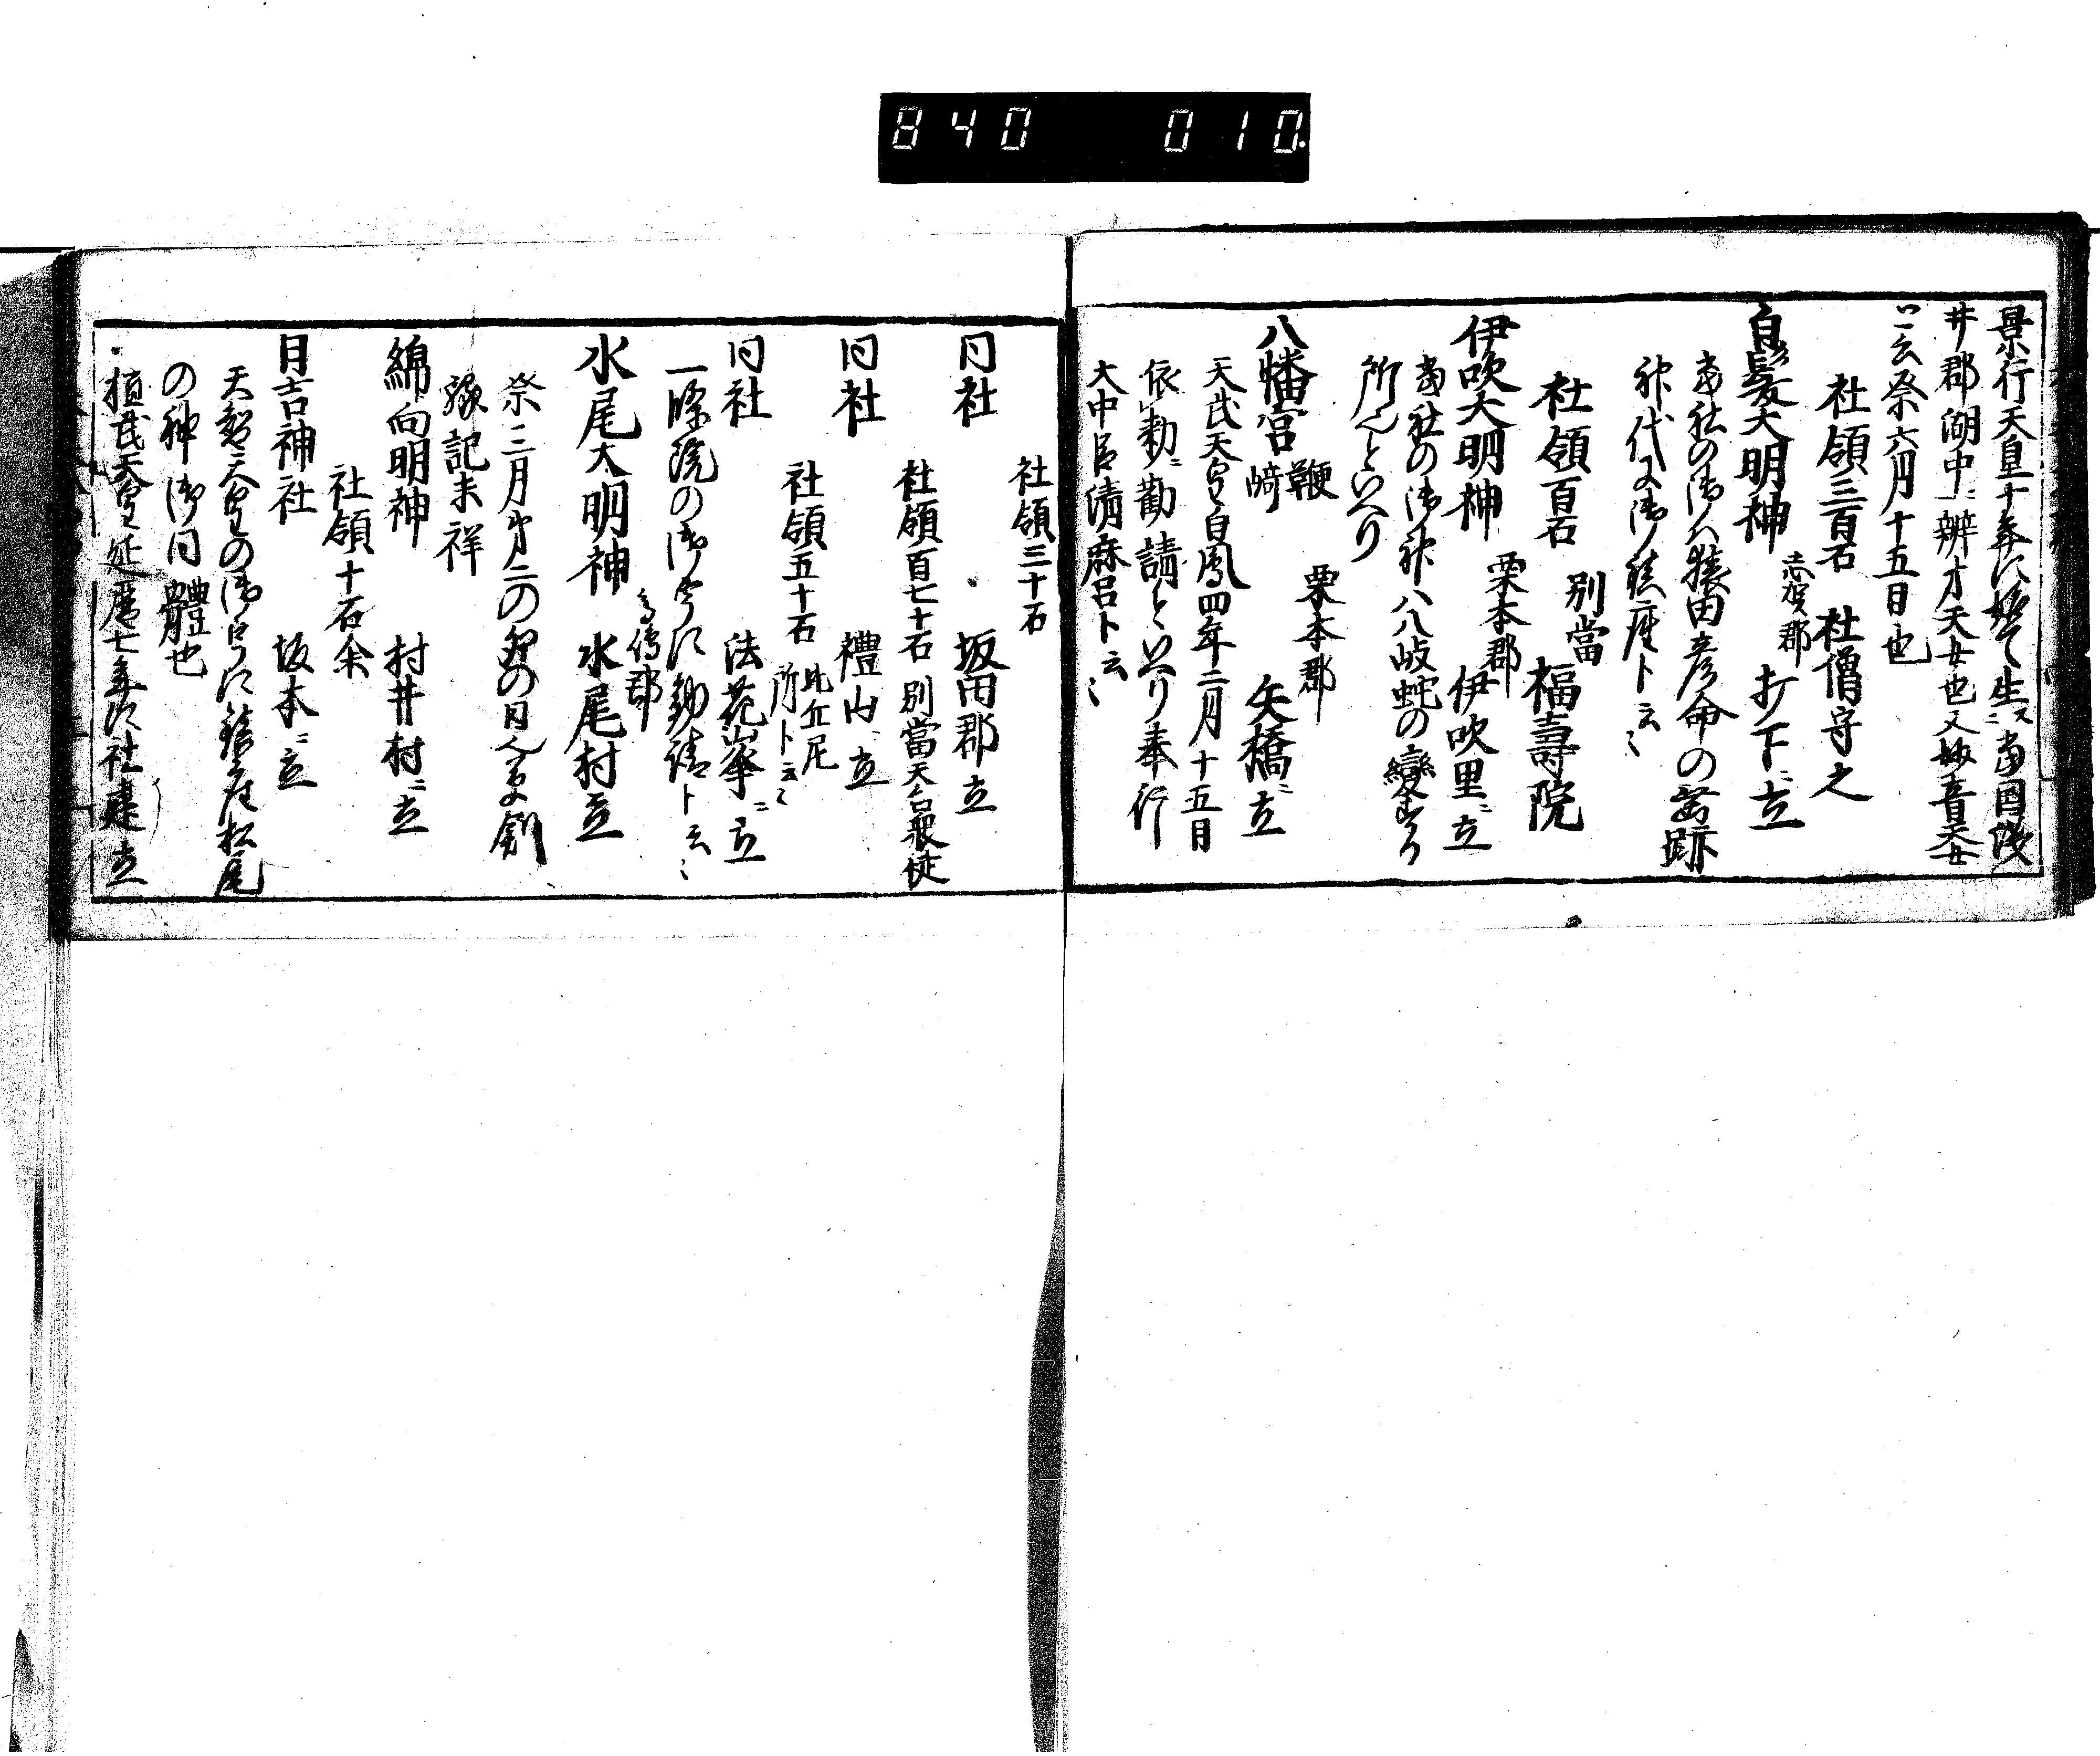 840 010.
景行天皇十年に始て生ス当国浅
井郡湖中ニ辨才天女也又妙音天女
云祭六月十五日也
社領三百石 社僧守之
白髪大明神 志賀郡 打下ニ立
当社の御神ハ猿田彦命の苗跡
神代より御鎮座ト云〻
社領百石 別當 福壽院
伊吹大明神 栗本郡 伊吹里ニ立
当社の御神ハ八岐蛇の變する
所といへり
八幡宮 鞭﨑 栗本郡 矢橋ニ立
天武天皇白鳳四年二月十五日
依勅ニ勸請といへり奉行
大中臣清麻呂ト云〻
社領三十石
同社 坂田郡立
社領百七十石 別當天台衆徒
同社 禮山ニ立
社領五十石 比丘尼所ト云〻
同社 法花峯ニ立
一條院の御宇に勧請ト云〻
水尾大明神 高嶋郡 水尾村立
祭三月中ノ二の卯の日
縁記未祥
綿向明神 村井村ニ立
社領十石余
日吉神社 坂本ニ立
天智天皇の御宇に鎮座松尾
の神御同體也
桓武天皇延暦七年に社建立